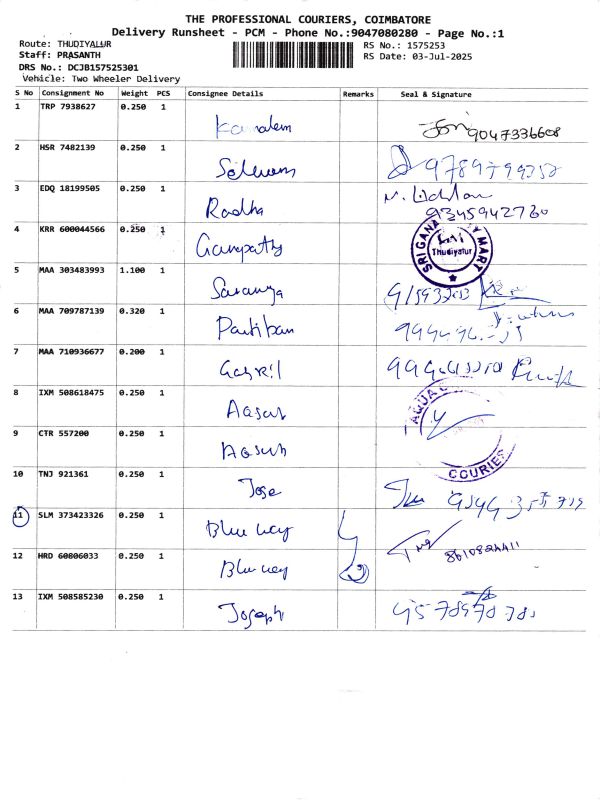 THE PROFESSIONAL COURIERS, COIMBATORE
Delivery Runsheet - PCM - Phone No.:9047080280 - Page No.:1
Route: THUDIYALUR
RS No.: 1575253
Staff: PRASANTH
RS Date: 03-Jul-2025
DRS No.: DCJB157525301
Vehicle: Two Wheeler Delivery
S No Consignment No Weight PCS Consignee Details Remarks Seal & Signature
1 TRP 7938627 0.250 1
9047336608
2 HSR 7482139 0.250 1 Selvam
3 EDQ 18199505 0.250 1 Radha
9345942760
4 KRR 600044566 0.250 1 Ganpathy
SRI GANA Y MART
Thudiyalur
5 MAA 303483993 1.100 1 Saranya
6 MAA 709787139 0.320 1 Partiban
7 MAA 710936677 0.200 1
8 IXM 508618475 0.250 1
AQUA
COURIES
9 CTR 557200 0.250 1
10 TNJ 921361 0.250 1 Jose
11 SLM 373423326 0.250 1 Blue way
8610824411
12 HRD 60806033 0.250 1 Blue way
13 IXM 508585230 0.250 1 Joseph